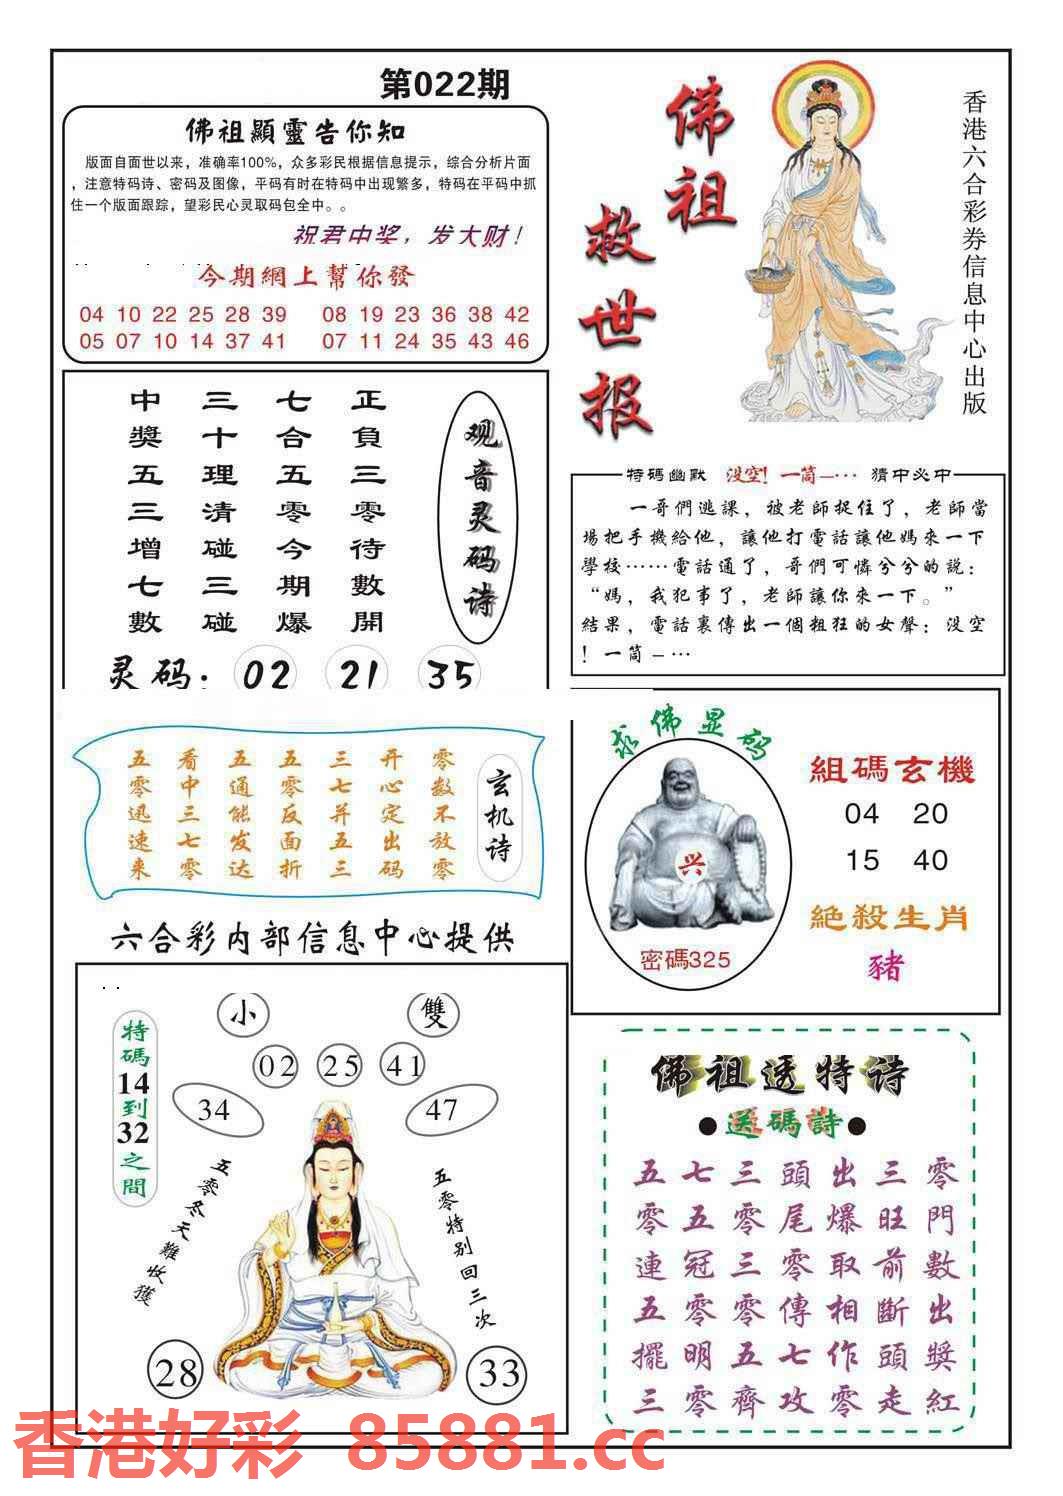 第022期
佛祖顯靈告你知
版面自面世以来，准确率100%，众多彩民根据信息提示，综合分析片面
，注意特码诗、密码及图像，平码有时在特码中出现繁多，特码在平码中抓
住一个版面跟踪，望彩民心灵取码包全中。。
祝君中奖，发大财！
今期網上幫你發
04 10 22 25 28 39 08 19 23 36 38 42
05 07 10 14 37 41 07 11 24 35 43 46
佛祖
救世报
香港六合彩券信息中心出版
观音灵码诗
正負三零待數開
七合五零今期爆
三十理清碰三碰
中獎五三增七數
灵码： 02 21 35
特碼幽默 没空！一筒—… 猜中必中
一哥們逃課，被老師捉住了，老師當
場把手機給他，讓他打電話讓他媽來一下
學校……電話通了，哥們可憐兮兮的説：
“媽，我犯事了，老師讓你來一下。”
結果，電話裏傳出一個粗狂的女聲：没空
！一筒—…
玄机诗
零数不放零
开心定出码
三七并五三
五零反面折
五通能发达
看中三七零
五零迅速来
求佛显码
兴
密碼325
組碼玄機
04 20
15 40
絶殺生肖
豬
六合彩内部信息中心提供
特碼14到32之間
小 雙
02 25 41
34 47
五零冬天難收獲
五零特别回三次
28 33
佛祖透特诗
●送碼詩●
五七三頭出三零
零五零尾爆旺門
連冠三零取前數
五零零傳相斷出
擺明五七作頭獎
三零齊攻零走紅
香港好彩 85881.cc